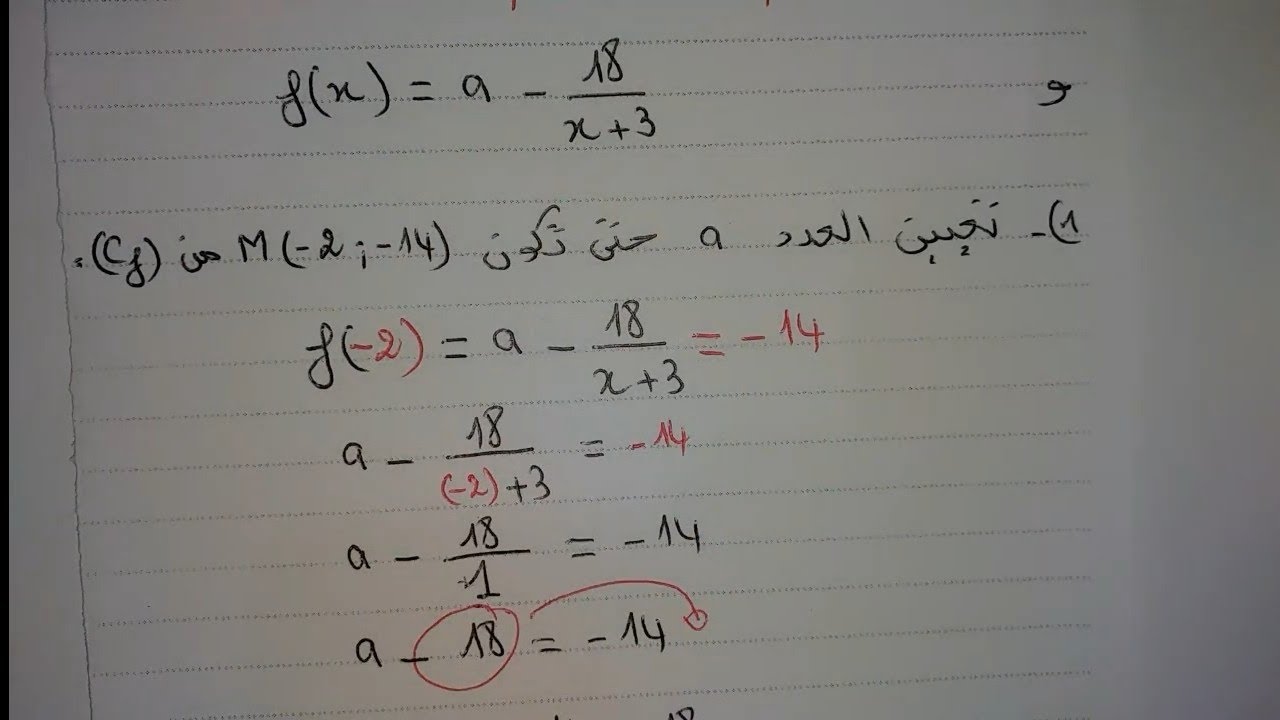 و f(x) = a - 18/(x+3)
1)- تعيين العدد a حتى تكون M(-2 ; -14) من (Cf).
f(-2) = a - 18/(x+3) = -14
a - 18/((-2)+3) = -14
a - 18/1 = -14
a - 18 = -14